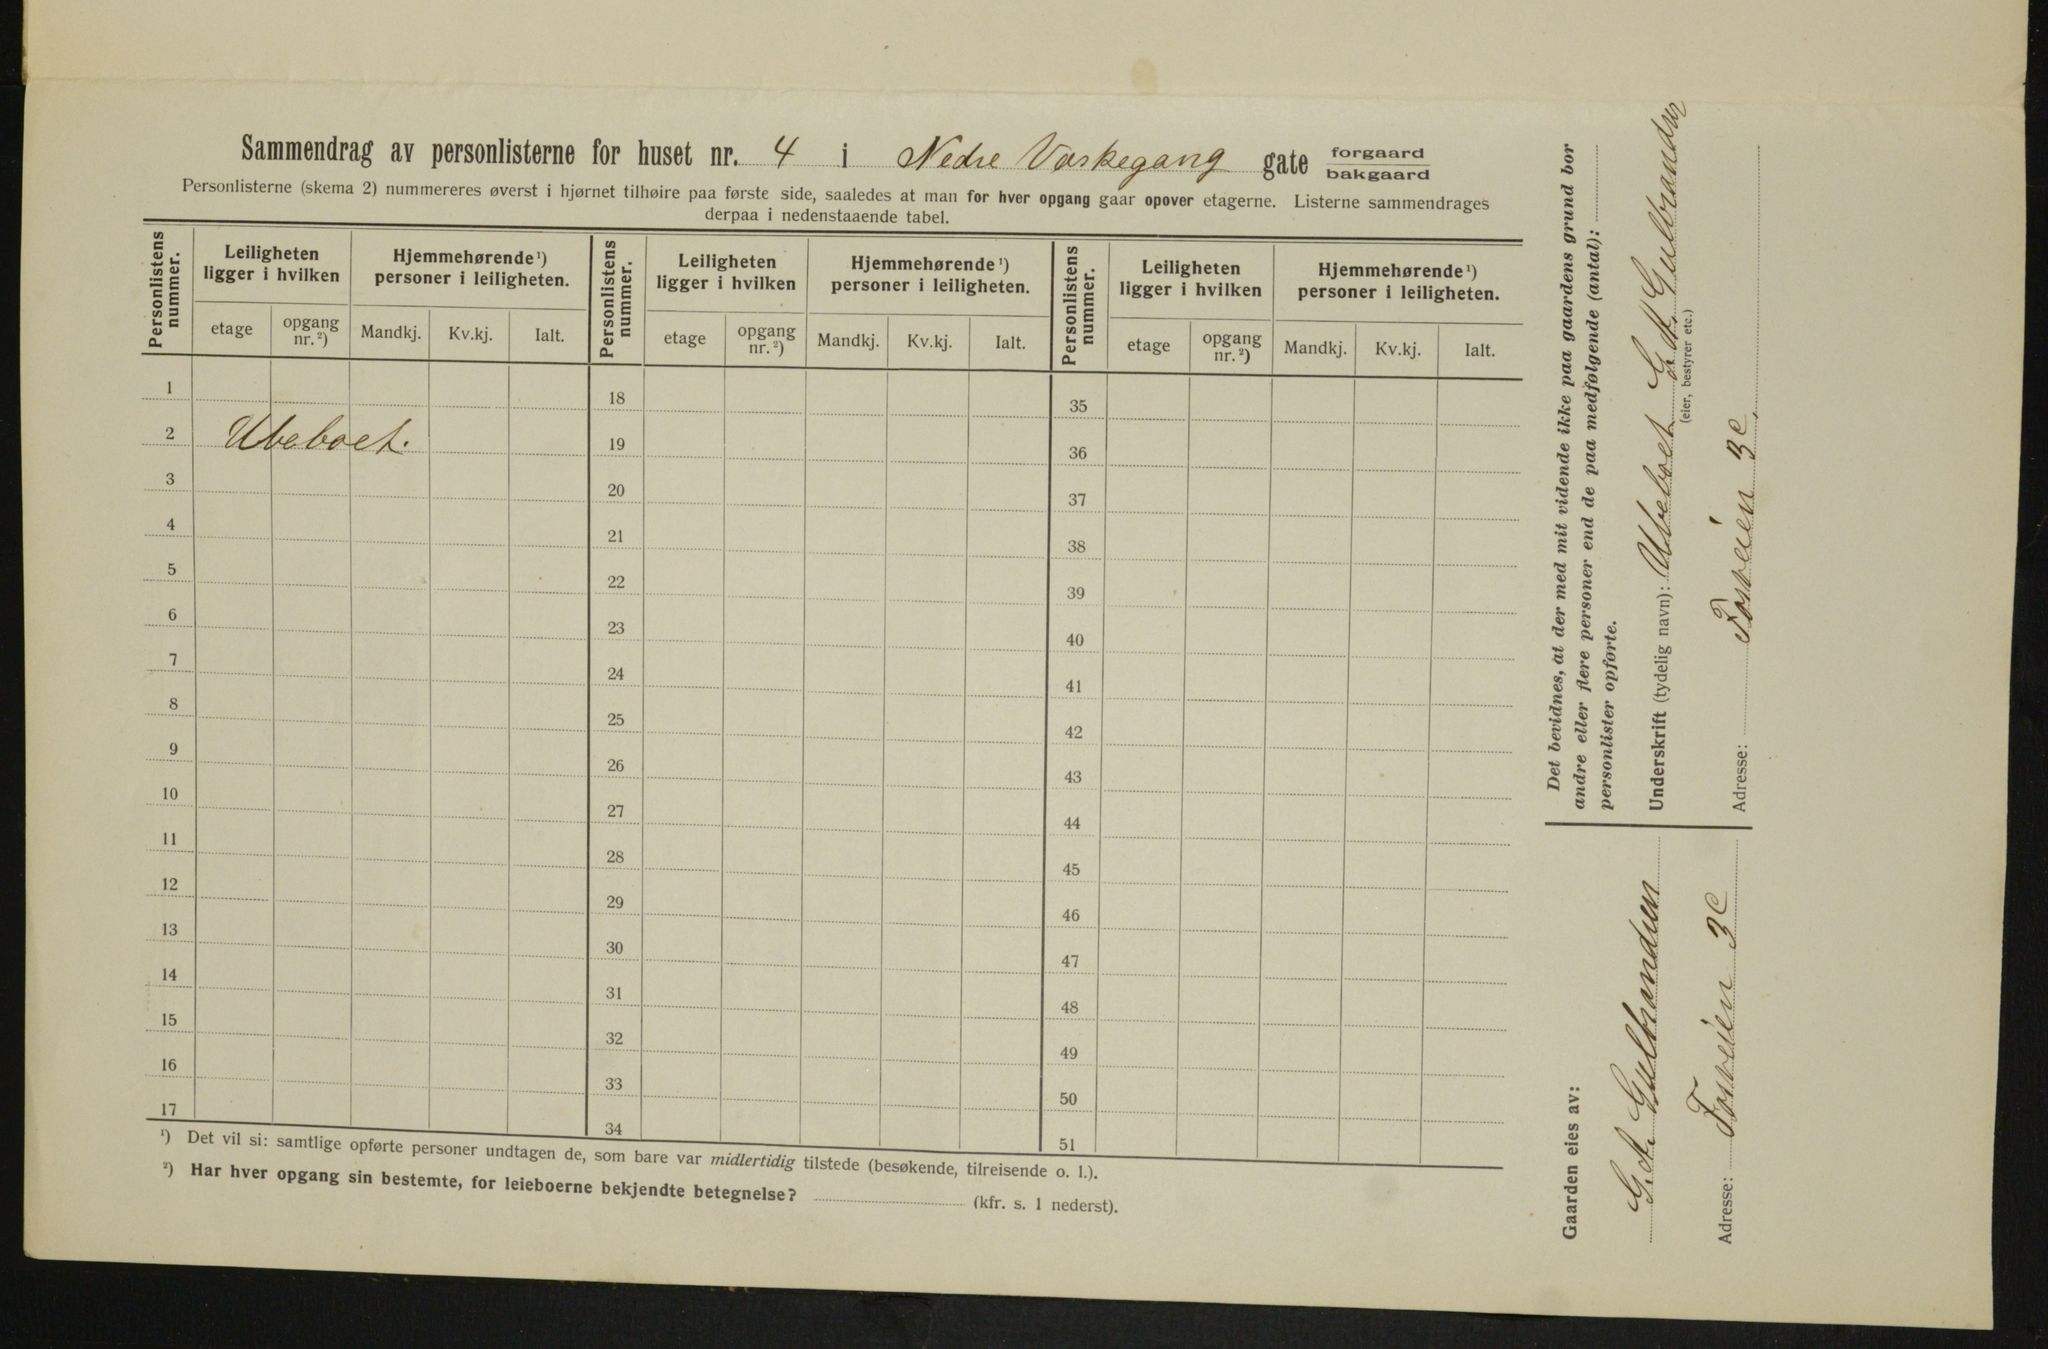 Sammendrag av personlisterne for huset nr. 4 i Nedre Vaskegang gate forgaard bakgaard
Personlisterne (skema 2) nummereres øverst i hjørnet tilhøire paa første side, saaledes at man for hver opgang gaar opover etagerne. Listerne sammendrages
derpaa i nedenstaaende tabel.
Personlistens nummer. Leiligheten ligger i hvilken Hjemmehørende ¹) personer i leiligheten. Personlistens nummer. Leiligheten ligger i hvilken Hjemmehørende ¹) personer i leiligheten. Personlistens nummer. Leiligheten ligger i hvilken Hjemmehørende ¹) personer i leiligheten.
etage opgang nr. ²) Mandkj. Kv.kj. Ialt. etage opgang nr. ²) Mandkj. Kv.kj. Ialt. etage opgang nr. ²) Mandkj. Kv.kj. Ialt.
1 18 35
2 Ubeboet. 19 36
3 20 37
4 21 38
5 22 39
6 23 40
7 24 41
8 25 42
9 26 43
10 27 44
11 28 45
12 29 46
13 30 47
14 31 48
15 32 49
16 33 50
17 34 51
¹) Det vil si: samtlige opførte personer undtagen de, som bare var midlertidig tilstede (besøkende, tilreisende o. l.).
²) Har hver opgang sin bestemte, for leieboerne bekjendte betegnelse? (kfr. s. 1 nederst).
Det bevidnes, at der med mit vidende ikke paa gaardens grund bor
andre eller flere personer end de paa medfølgende (antal):
personlister opførte.
Underskrift (tydelig navn): Ubeboet G. A. Gulbrandsen
(eier, bestyrer etc.)
Adresse: Fosveien 3c
Gaarden eies av:
G. A. Gulbrandsen
Adresse: Fosveien 3c